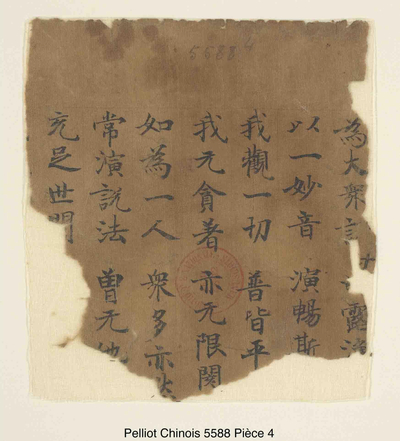 5588
為大衆說 甘露淨
以一妙音 演暢斯
我觀一切 普皆平
我无貪著 亦无限閡
如為一人 衆多亦然
常演說法 曽无他
充足世間
Pelliot Chinois 5588 Pièce 4